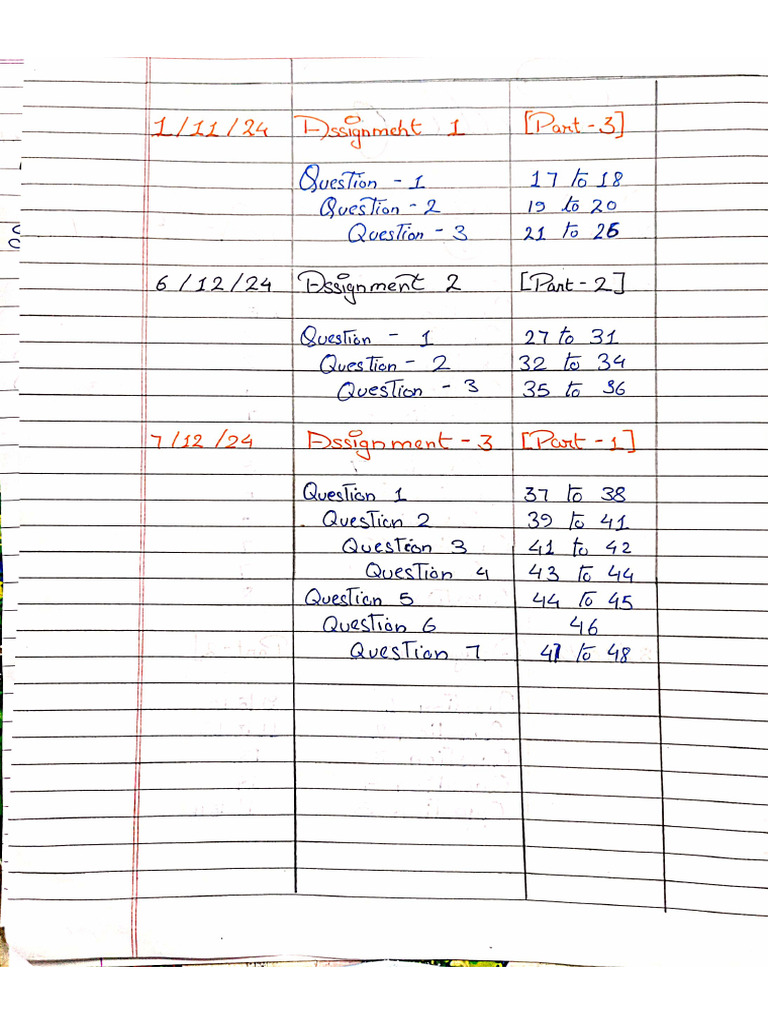 1/11/24 Assignment 1 [Part-3]
Question - 1 17 to 18
Question - 2 19 to 20
Question - 3 21 to 26
6/12/24 Assignment 2 [Part-2]
Question - 1 27 to 31
Question - 2 32 to 34
Question - 3 35 to 36
7/12/24 Assignment - 3 [Part-1]
Question 1 37 to 38
Question 2 39 to 41
Question 3 41 to 42
Question 4 43 to 44
Question 5 44 to 45
Question 6 46
Question 7 47 to 48